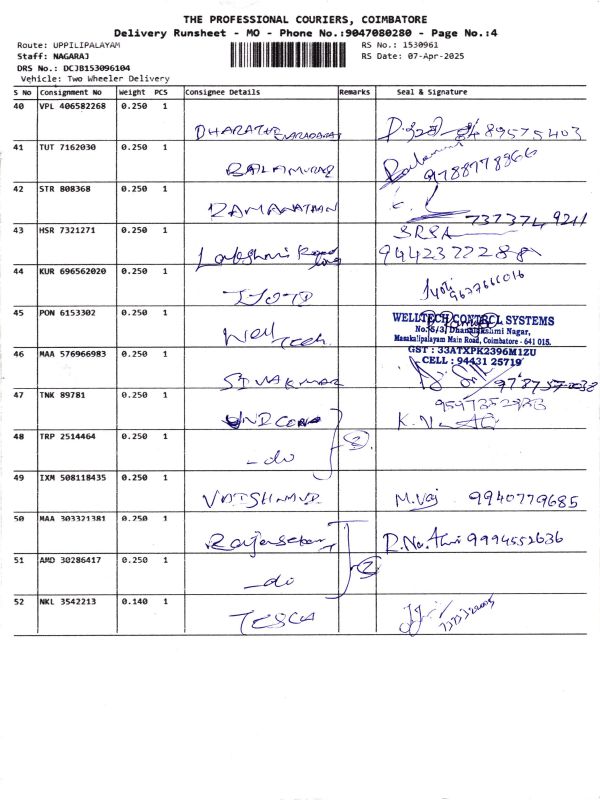 THE PROFESSIONAL COURIERS, COIMBATORE
Delivery Runsheet - MO - Phone No.:9047080280 - Page No.:4
Route: UPPILIPALAYAM
RS No.: 1530961
Staff: NAGARAJ
RS Date: 07-Apr-2025
DRS No.: DCJB153096104
Vehicle: Two Wheeler Delivery
S No Consignment No Weight PCS Consignee Details Remarks Seal & Signature
40 VPL 406582268 0.250 1
41 TUT 7162030 0.250 1
BALAMURUG 9788778866
42 STR 808368 0.250 1
RAMANATHAN
43 HSR 7321271 0.250 1
SRSA
Lakshmi
44 KUR 696562020 0.250 1
JYOTI Jyoti 9627666016
45 PON 6153302 0.250 1
Well Tech.
WELLTECH CONTROL SYSTEMS
No. 6/3, Dhanalakshmi Nagar,
Masakalipalayam Main Road, Coimbatore - 641 015.
GST : 33ATXPK2396M1ZU
CELL : 94431 25719
46 MAA 576966983 0.250 1
SIVAKUMAR
47 TNK 89781 0.250 1
K.
48 TRP 2514464 0.250 1
- do 2
49 IXM 508118435 0.250 1
VAISHNAVI M.Vaj 9940779685
50 MAA 303321381 0.250 1
Rajasekar 9994552636
51 AMD 30286417 0.250 1
- do 2
52 NKL 3542213 0.140 1
TESCA